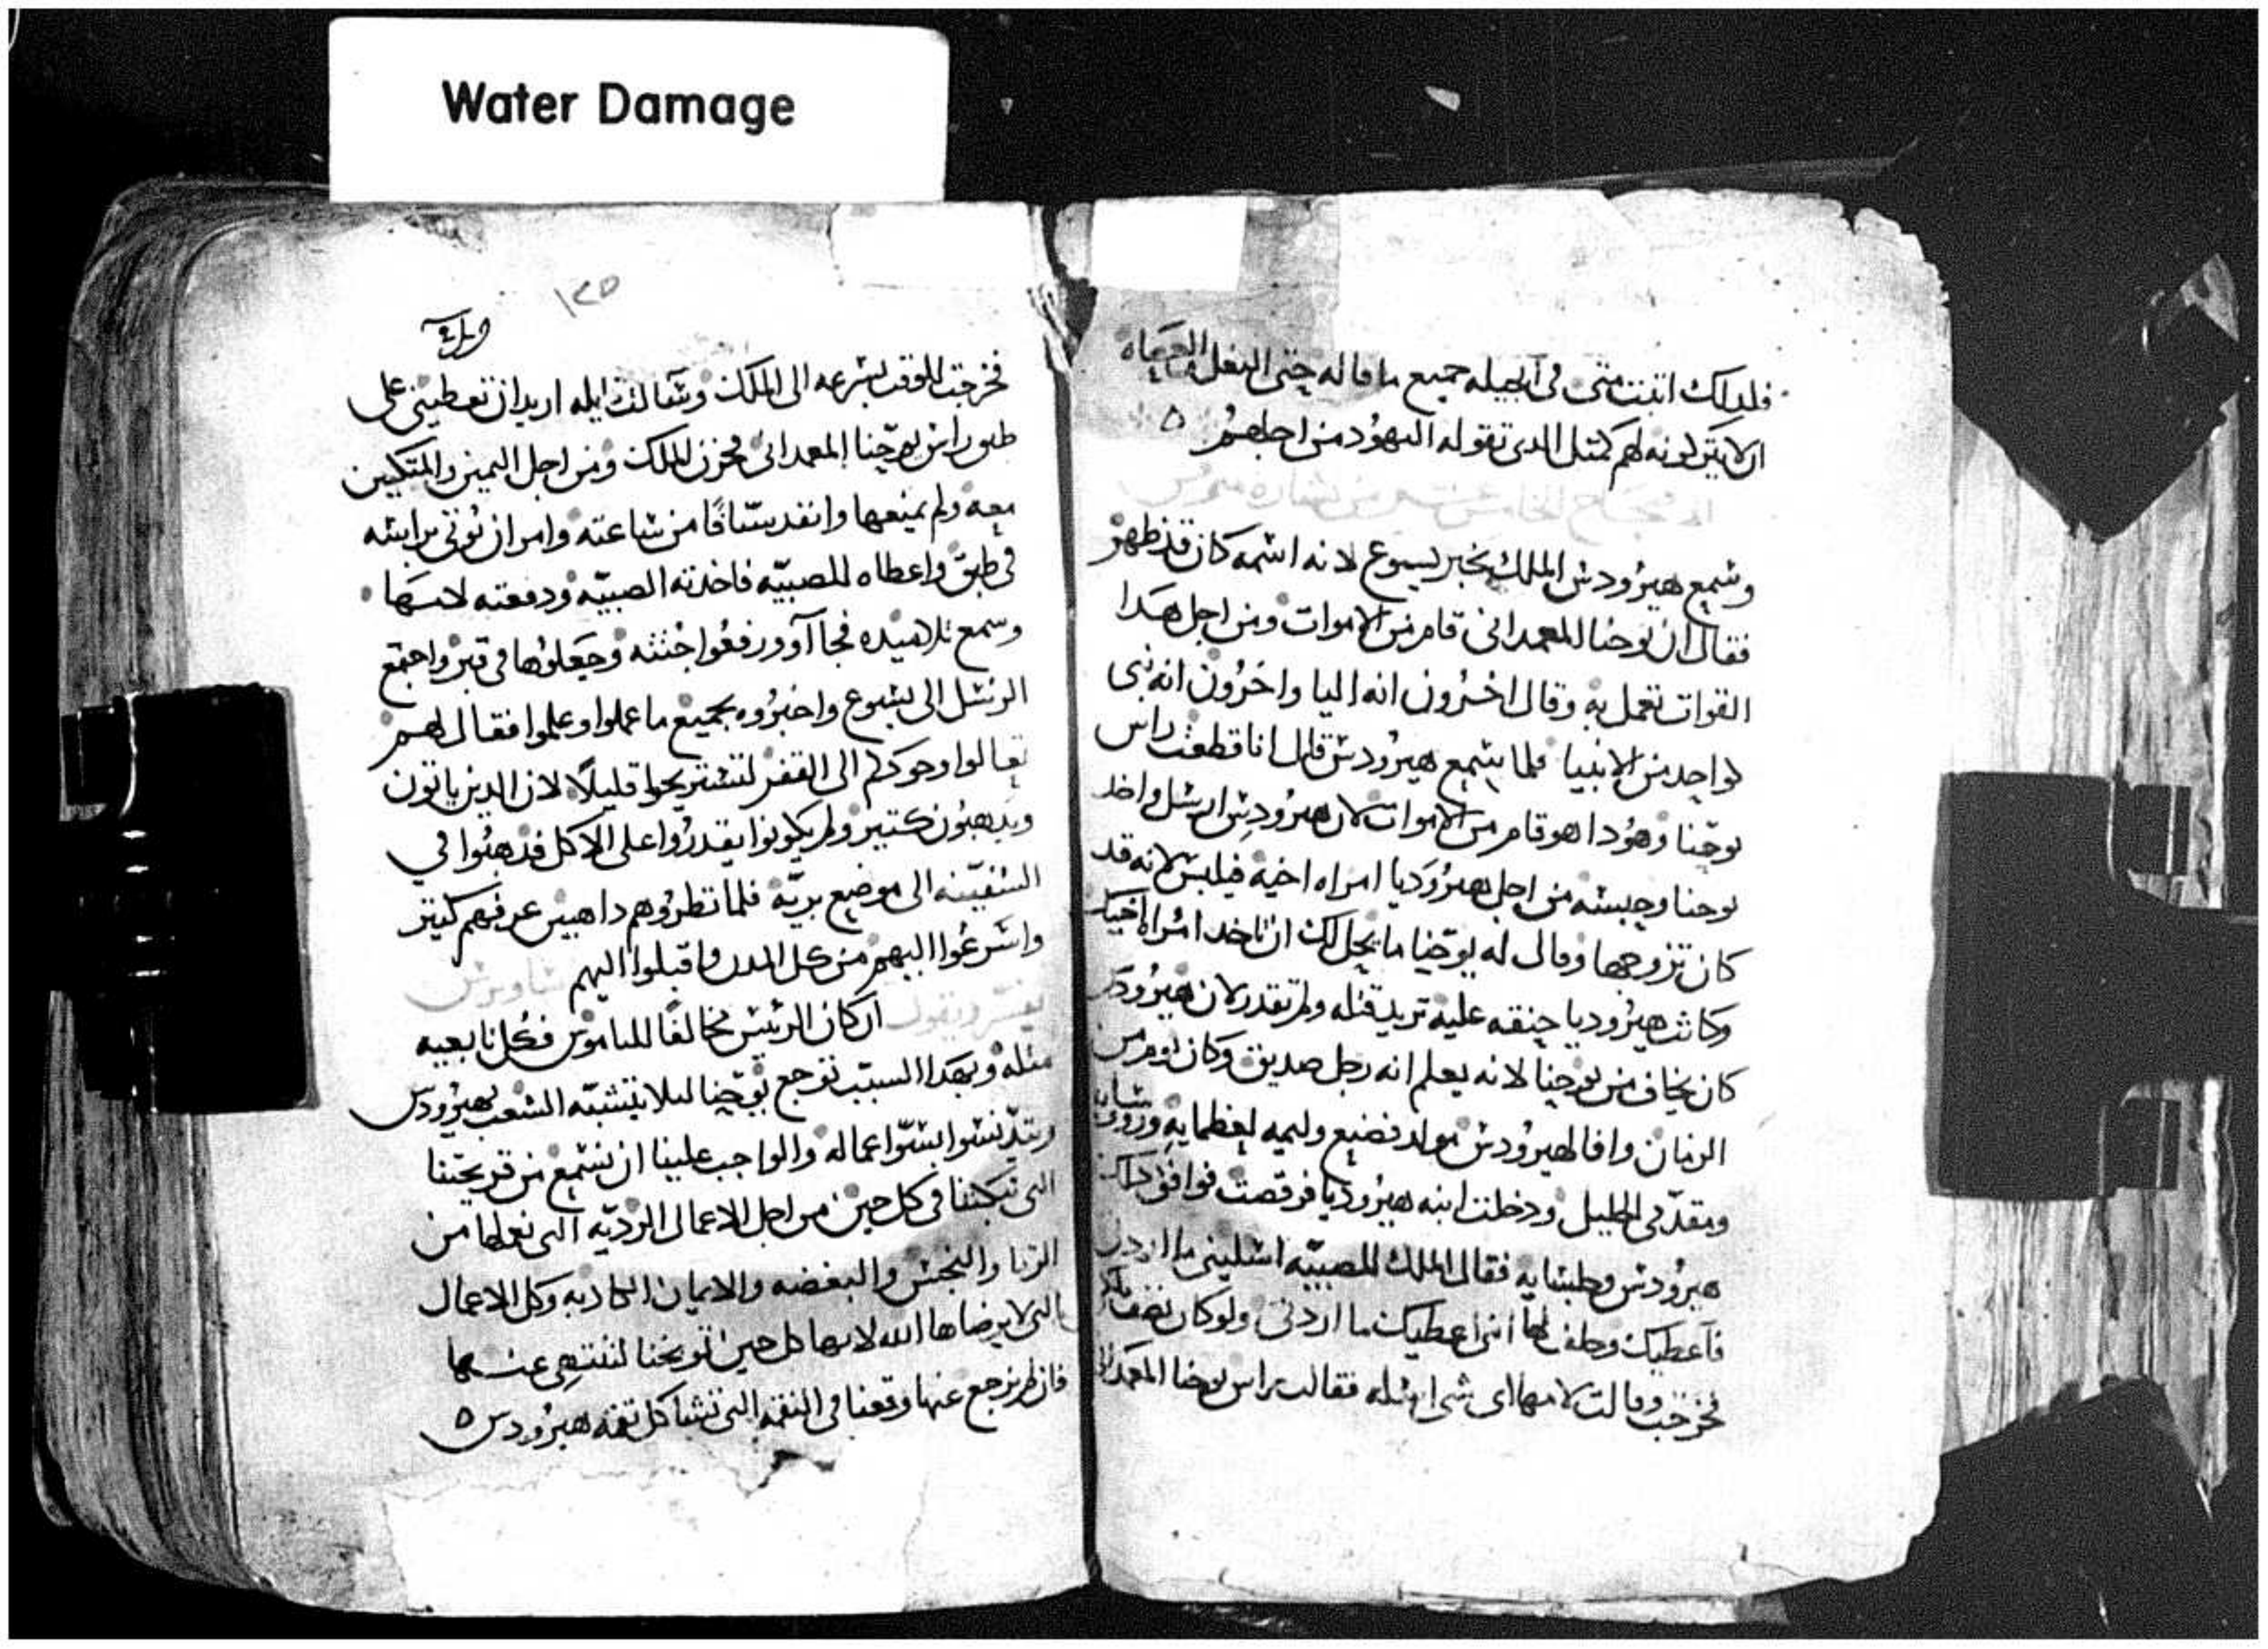 Water Damage
فلدلك اتبت متى فى انجيله جميع ما قاله حتى النعل والعصاه
ان لا يتركونه لهم كمتل الدى تقوله اليهود من اجلهم
الاصحاح الخامس عشر من بشاره مرقس
وسمع هيرودس الملك بخبر يسوع لانه اسمه كان قد ظهر
فقال ان يوحنا المعمدانى قام من الاموات ومن اجل هدا
القوات تعمل به وقال اخرون انه اليا واخرون انه نبى
كواحد من الانبيا فلما سمع هيرودس قال انا قطعت راس
يوحنا وهودا هو قام من الاموات لان هيرودس ارسل واخد
يوحنا وحبسه من اجل هيروديا امراه اخيه فيلبس لانه قد
كان تزوجها وقال له يوحنا ما يحل لك ان تاخد امراه اخيك
وكانت هيروديا حنقه عليه تريد قتله ولم تقدر لان هيرودس
كان يخاف من يوحنا لانه يعلم انه رجل صديق وكان يوم من
الزمان وافا لهيرودس مولد فصنع وليمه لعظمايه وروسا
ومقدمى الجليل ودخلت ابنه هيروديا فرقصت فوافق دلك
هيرودس وجلسايه فقال الملك للصبيه اسلينى ما اردتى
فاعطيك وحلف لها اننى اعطيك ما اردتى ولو كان نصف ملكى
فخرجت وقالت لامها اى شى اسله فقالت براس يوحنا المعمدانى
١٢٥
فخرجت للوقت بسرعه الى الملك وسالت ايله اريد ان تعطينى على
طبق راس يوحنا المعمدانى فحزن الملك ومن اجل اليمين والمتكيين
معه ولم يمنعها وانفد سيافا من ساعته وامر ان يوتى براسه
فى طبق واعطاه للصبيه فاخدته الصبيه ودفعته لامها
وسمع تلاميده فجاآوا ورفعوا جثته وجعلوها فى قبر واجتمع
الرسل الى يسوع واخبروه بجميع ما عملوا وعلموا فقال لهم
تعالوا وحدكم الى القفر لتستريحوا قليلا لان الدين ياتون
ويدهبون كتير ولم يكونوا يقدروا على الاكل فدهبوا فى
السفينه الى موضع بريه فلما نظروهم داهبين عرفهم كتير
واسرعوا اليهم من كل المدن واقبلوا اليهم
يفسر ويقول ان كان الرييس مخالفا للناموس فكل تابعيه
مثله وبهدا السبب توجع يوحنا ليلا يتشبه الشعب بهيرودس
ويتدنسوا بسو اعماله والواجب علينا ان نسمع من توبيخنا
التى تبكتنا فى كل حين من اجل الاعمال الرديه التى نعملها من
الزنا والنجس والبغضه والايمان الكادبه وكل الاعمال
التى لا يرضاها الله لانها كل حين توبخنا لننتهى عنها
فان لم نرجع عنها وقعنا فى النقمه التى تشاكل نقمه هيرودس